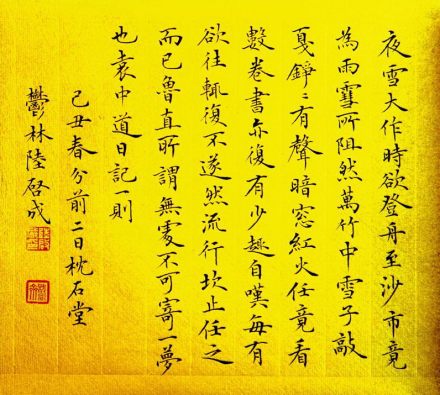 夜雪大作時欲登舟至沙市竟
為雨雪所阻然萬竹中雪子敲
戛錚〻有聲暗窓紅火任意看
數卷書亦復有少趣自嘆每有
欲往輒復不遂然流行坎止任之
而已魯直所謂無處不可寄一夢
也袁中道日記一則
己丑春分前二日枕石堂
鬱林陸啓成